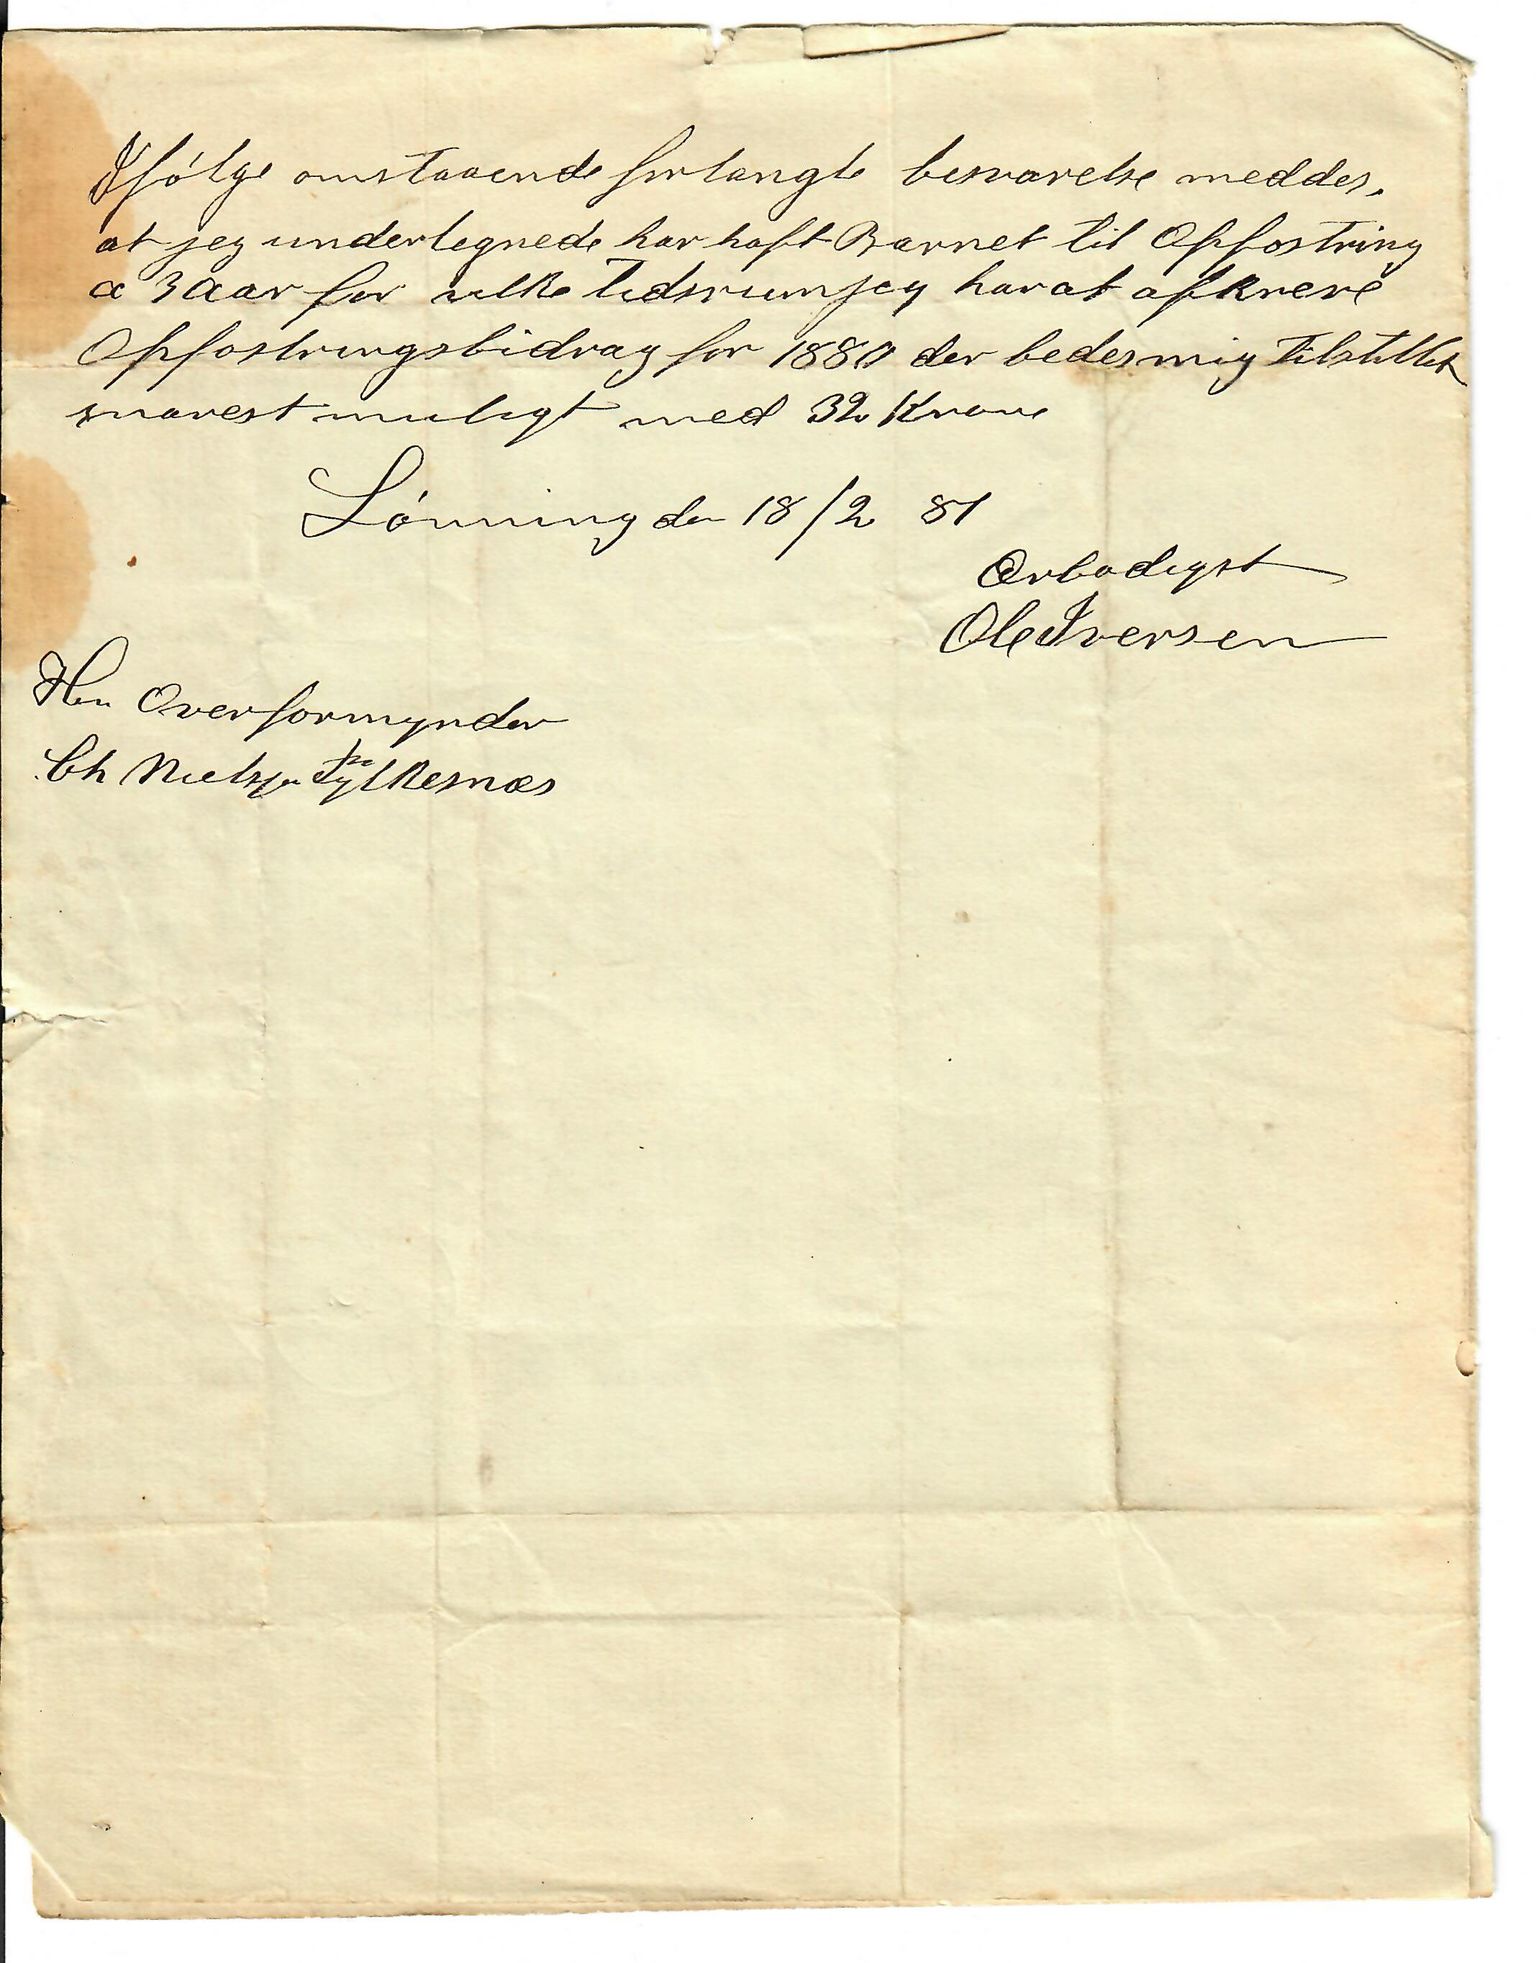 Ifølge omstaaende forlangte besvarelse meddes,
at jeg undertegnede har haft Barnet til Opfostring
a 3 Aar for vilke Tidsrum jeg har at afkreve
Opfostringsbidrag for 1880 der bedes mig Tilstillet
snarest muligt med 32 Krone
Lønning den 18/2 81
Ærbødigst
Ole Iversen
Hr. Overformynder
Ch Nielsen Fylkesnæs